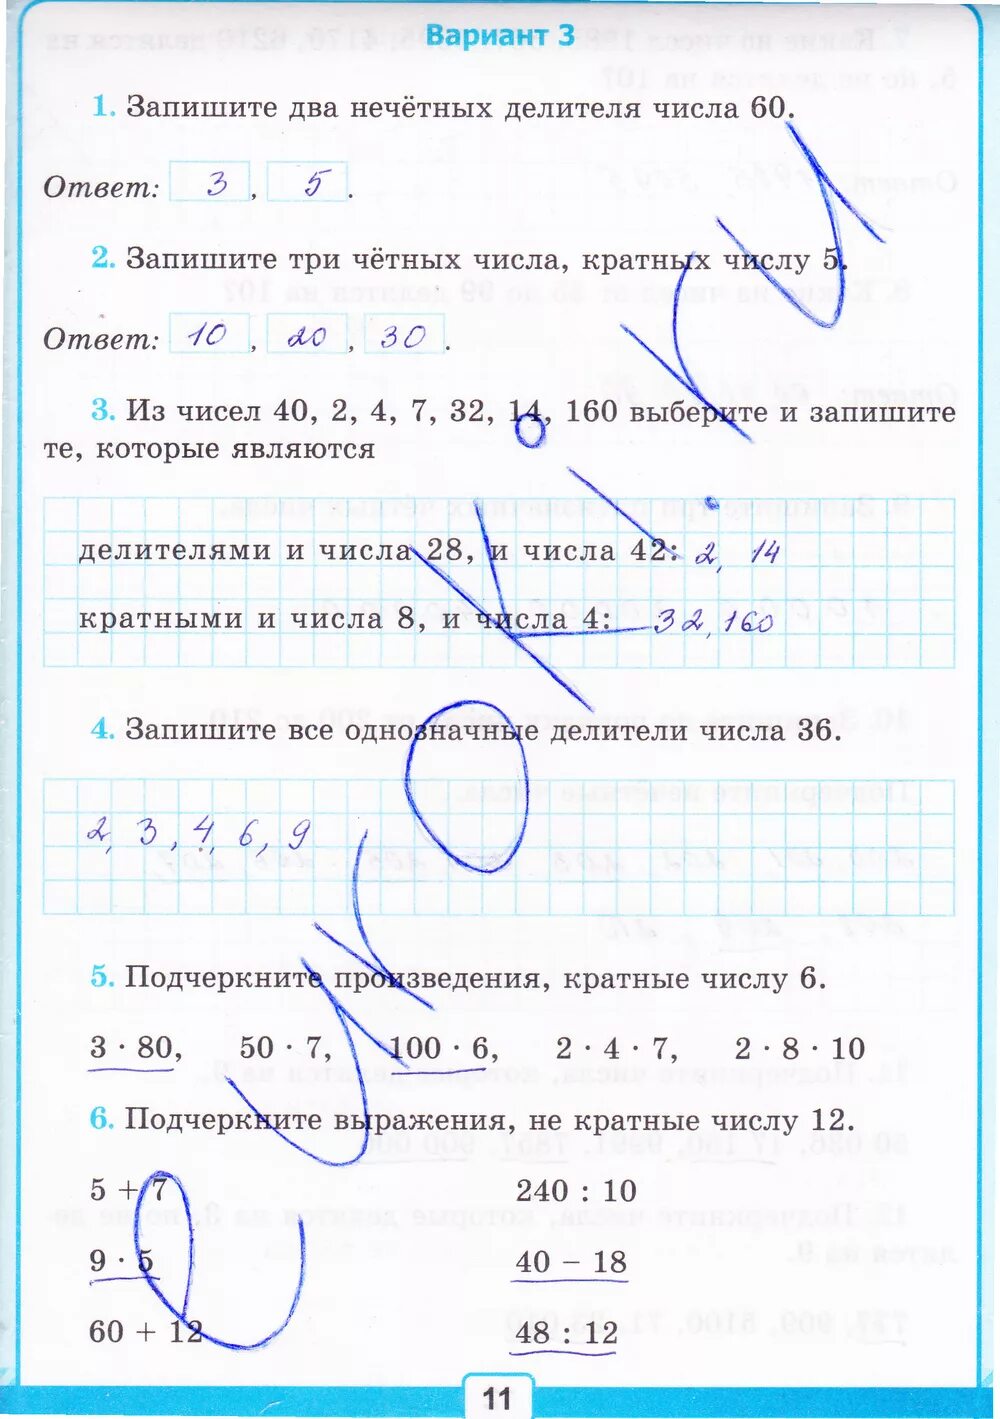 Вариант 3
1. Запишите два нечётных делителя числа 60.
Ответ: 3, 5.
2. Запишите три чётных числа, кратных числу 5.
Ответ: 10, 20, 30.
3. Из чисел 40, 2, 4, 7, 32, 14, 160 выберите и запишите
те, которые являются
делителями и числа 28, и числа 42: 2, 14
кратными и числа 8, и числа 4: 32, 160
4. Запишите все однозначные делители числа 36.
2, 3, 4, 6, 9
5. Подчеркните произведения, кратные числу 6.
3 · 80, 50 · 7, 100 · 6, 2 · 4 · 7, 2 · 8 · 10
6. Подчеркните выражения, не кратные числу 12.
5 + 7 240 : 10
9 · 5 40 − 18
60 + 12 48 : 12
11